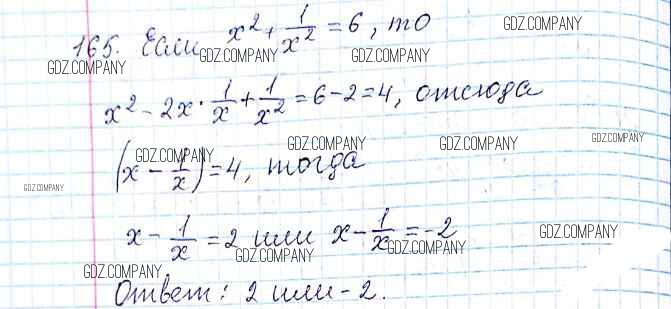 165. Если x² + 1/x² = 6, то
GDZ.COMPANY GDZ.COMPANY GDZ.COMPANY GDZ.COMPANY
x² - 2x · 1/x + 1/x² = 6 - 2 = 4, отсюда
GDZ.COMPANY GDZ.COMPANY GDZ.COMPANY GDZ.COMPANY
(x - 1/x) = 4, тогда
GDZ.COMPANY
x - 1/x = 2 или x - 1/x = -2
GDZ.COMPANY GDZ.COMPANY GDZ.COMPANY GDZ.COMPANY
Ответ: 2 или -2.